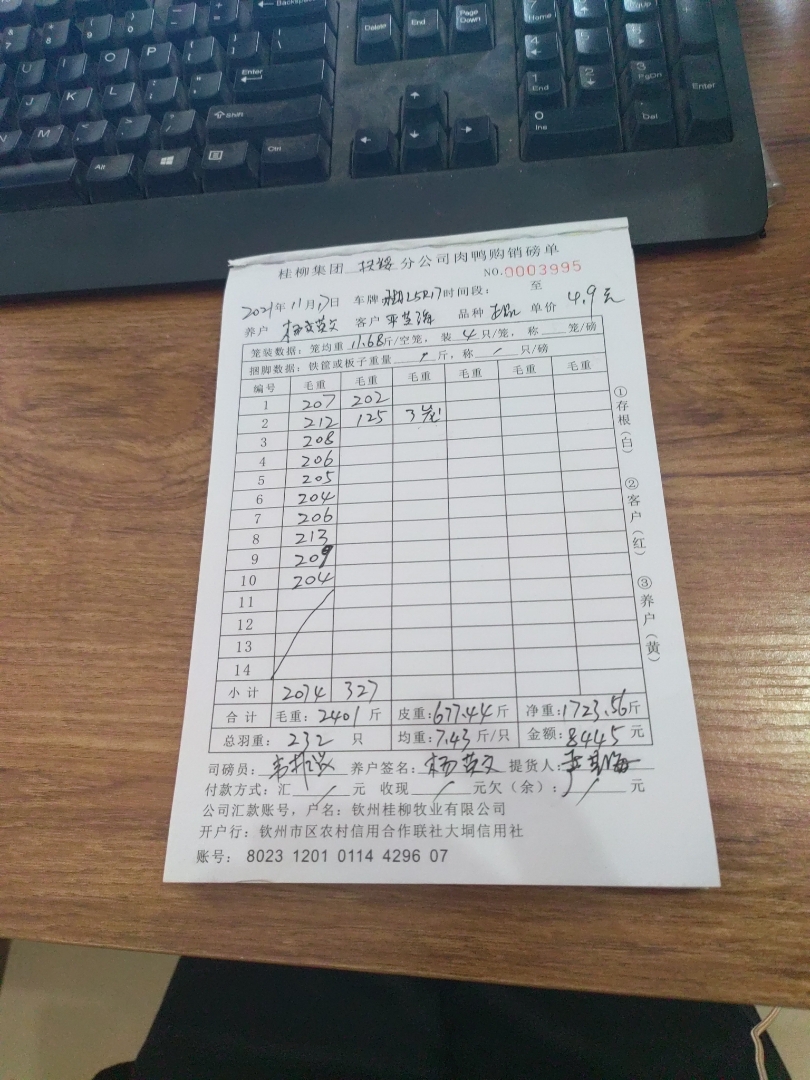 Backspace
7
8
9
0
U
I
O
P
Enter
J
K
L
Shift
N
M
Alt
Ctrl
Delete
End
Page Down
7 Home
4
1 End
2
3 PgDn
0 Ins
Del
Enter
桂柳集团 分公司肉鸭购销磅单
NO.0003995
2021年11月17日 车牌 时间段: 至
养户 杨 英文 客户 品种 单价 4.9元
笼装数据: 笼均重 11.68斤/空笼, 装 4 只/笼, 称 笼/磅
捆脚数据: 铁筐或板子重量 / 斤, 称 / 只/磅
编号 毛重 毛重 毛重 毛重 毛重 毛重
1 207 202
2 212 125 3笼
3 208
4 206
5 205
6 204
7 206
8 213
9 209
10 204
11
12
13
14
小计 2074 327
合计 毛重: 2401 斤 皮重: 677.44 斤 净重: 1723.56 斤
总羽重: 232 只 均重: 7.43 斤/只 金额: 8445 元
司磅员: 养户签名: 杨英文 提货人:
付款方式: 汇 / 元 收现 / 元欠(余): / 元
公司汇款账号, 户名: 钦州桂柳牧业有限公司
开户行: 钦州市区农村信用合作联社大垌信用社
账号: 8023 1201 0114 4296 07
①存根(白)
②客户(红)
③养户(黄)